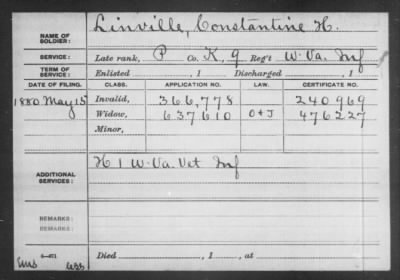 NAME OF SOLDIER: Linville, Constantine H.
SERVICE: Late rank, P Co. K, 9 Reg't W. Va. Inf
TERM OF SERVICE: Enlisted , 1 Discharged , 1
DATE OF FILING. CLASS. APPLICATION NO. LAW. CERTIFICATE NO.
1880 May 15 Invalid, 366,778 240969
Widow, 637610 O+J 476227
Minor,
ADDITIONAL SERVICES: H 1 W. Va. Vet Inf
REMARKS:
REMARKS:
Died , 1 , at